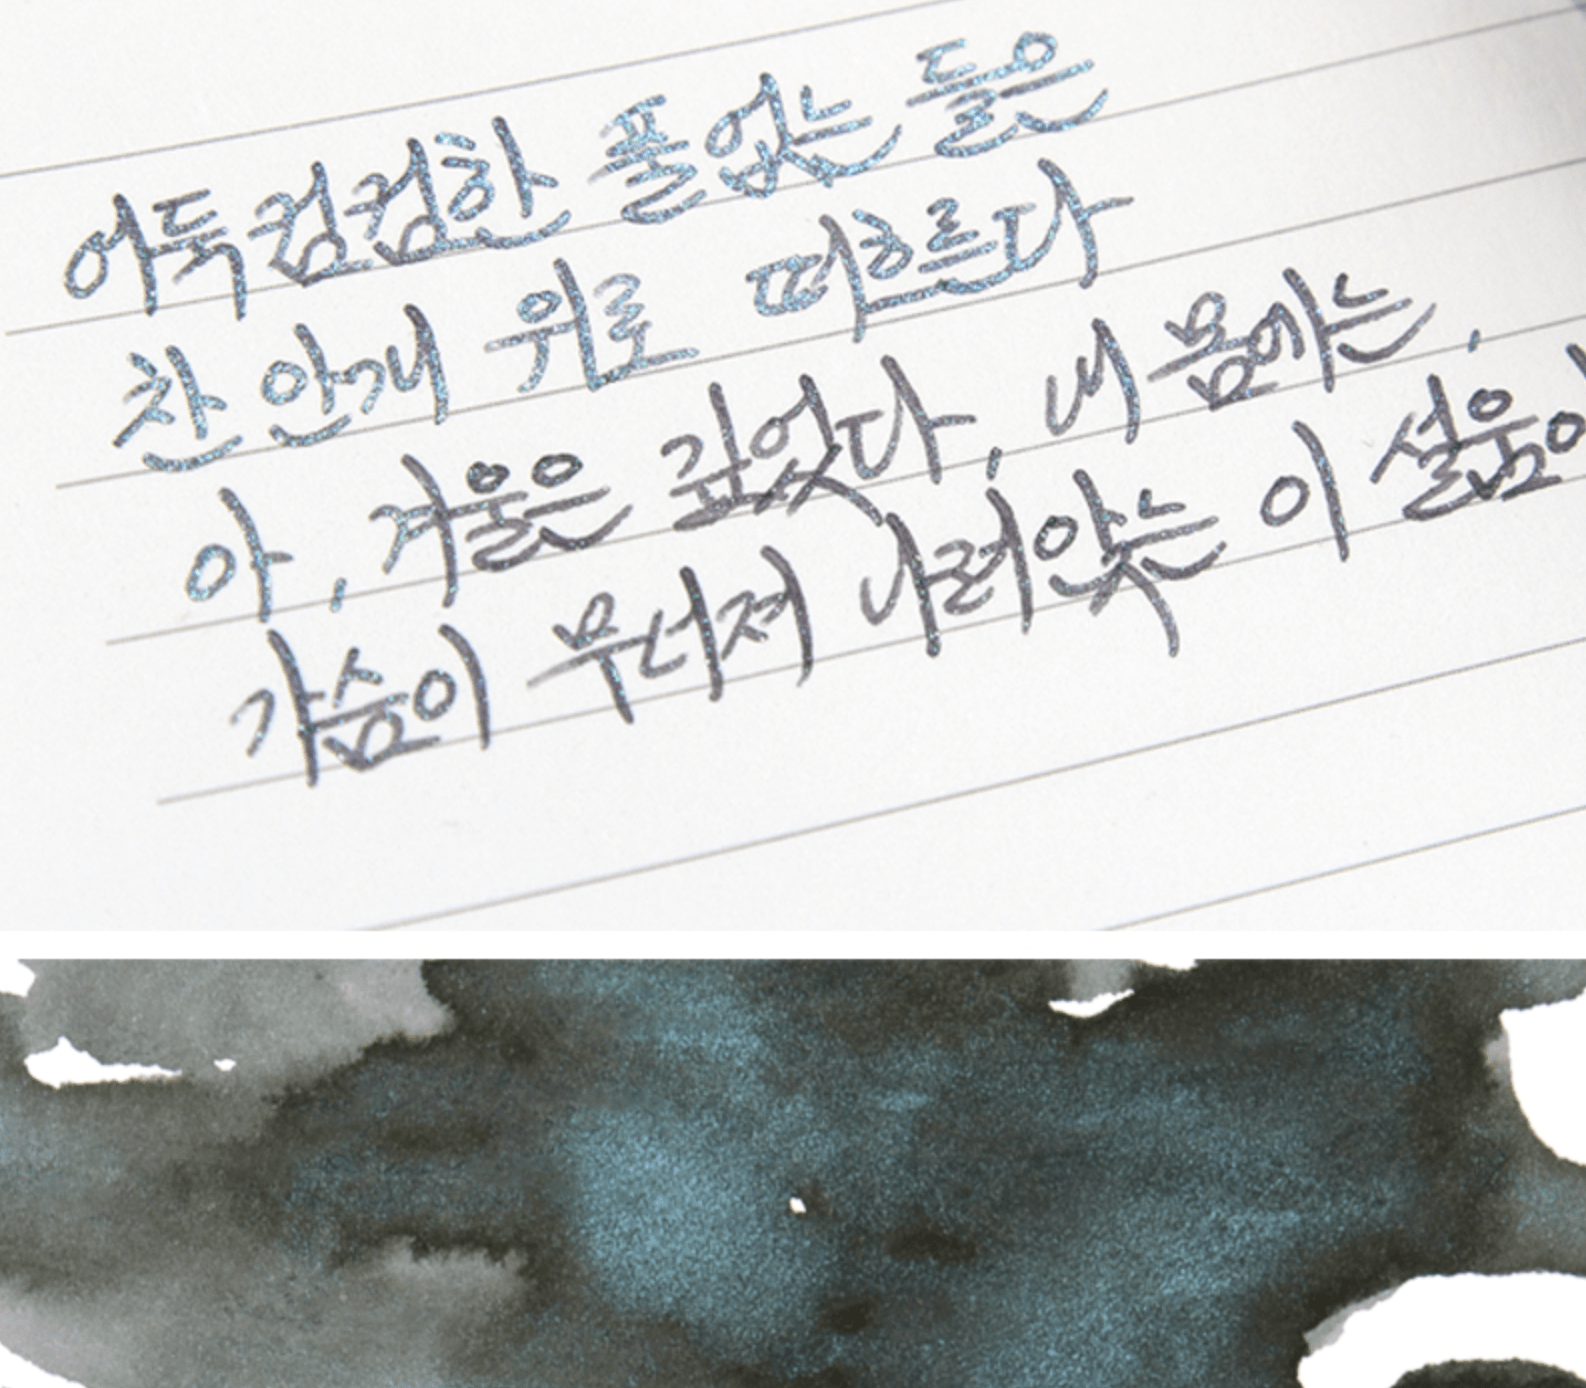 어둑컴컴한 풀없는 들은
찬 안개 위로 떠흐른다
아, 겨울은 깊었다, 내 몸에는,
가슴이 무너져 나려앉는 이 설움아